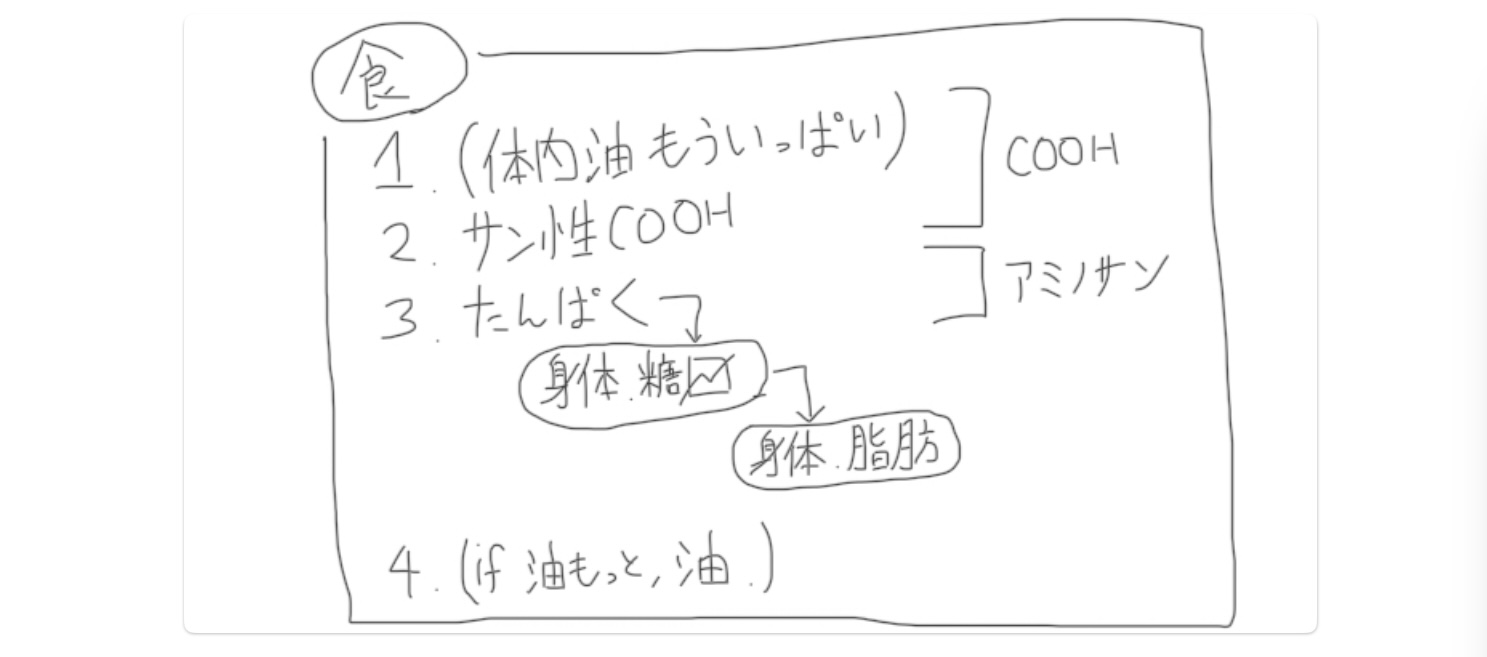 食
1. (体内油もういっぱい)
2. サン性COOH
COOH
3. たんぱく
アミノサン
身体.糖
身体.脂肪
4. (if 油もっと, 油.)